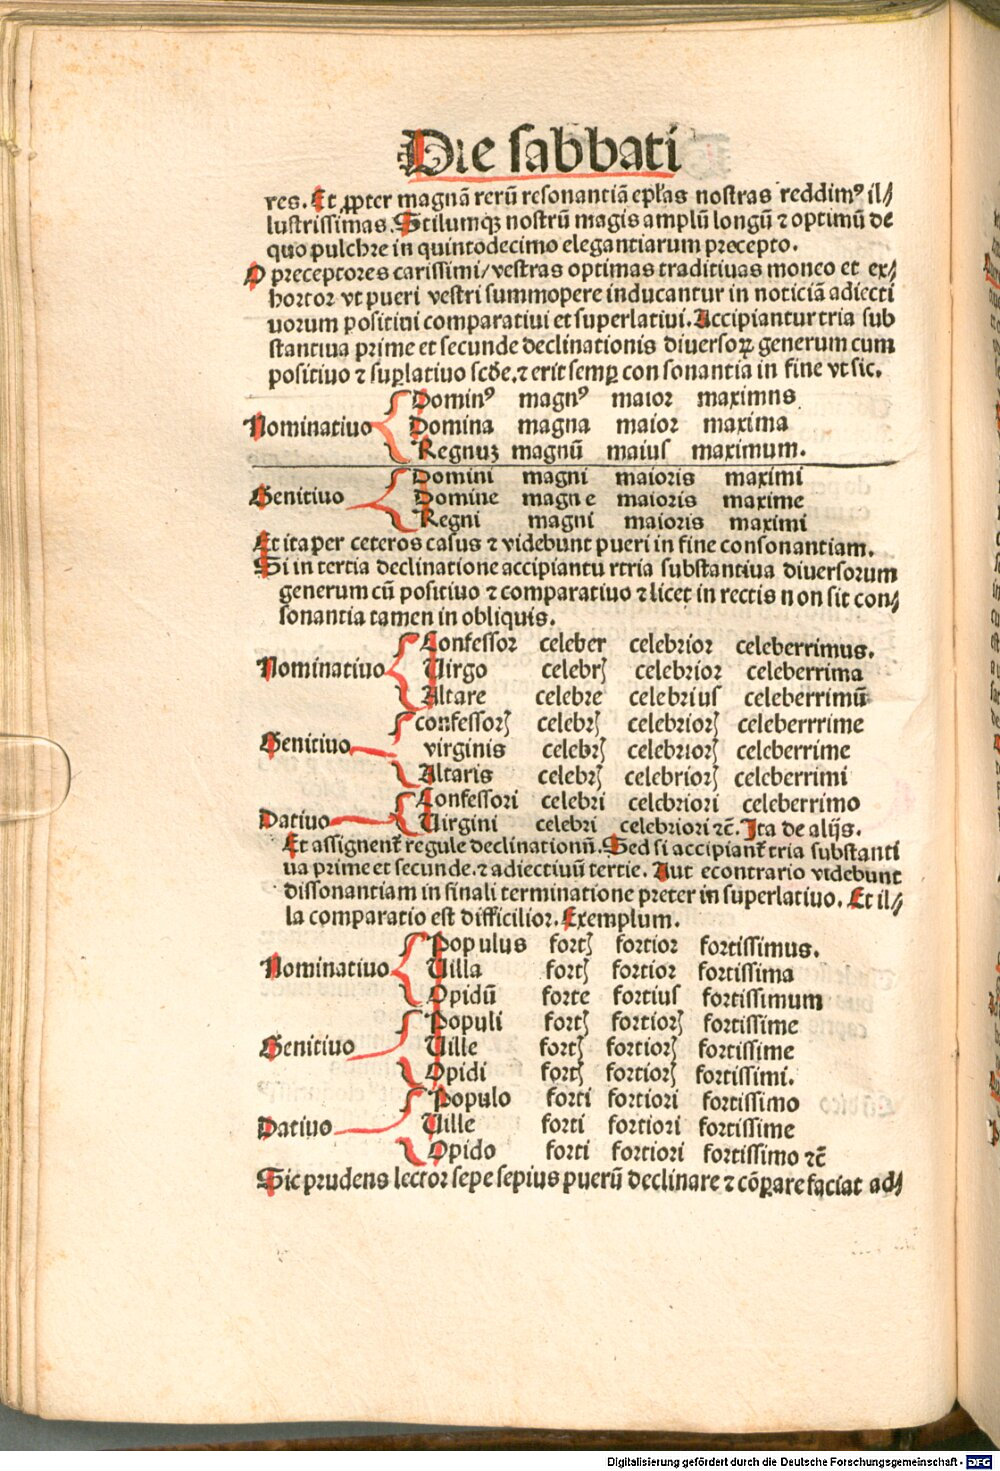 Die sabbati
res. Et ꝓpter magnā rerū resonantiā epl̄as nostras reddimꝰ il⸗
lustrissimas. Stilumqꝫ nostrū magis amplū longū ⁊ optimū de
quo pulchre in quintodecimo elegantiarum precepto.
O preceptores carissimi/ vestras optimas traditiuas moneo et ex⸗
hortor vt pueri vestri summopere inducantur in noticiā adiecti
uorum positiui comparatiui et superlatiui. Accipiantur tria sub
stantiua prime et secunde declinationis diuersoꝝ generum cum
positiuo ⁊ suꝑlatiuo scd̄e. ⁊ erit semꝑ con sonantia in fine vt sic.
Dominꝰ magnꝰ maior maximns
Nominatiuo Domina magna maior maxima
Regnuꝫ magnū maius maximum.
Domini magni maioris maximi
Genitiuo Domine magne maioris maxime
Regni magni maioris maximi
Et ita per ceteros casus ⁊ videbunt pueri in fine consonantiam.
Si in tertia declinatione accipiantu rtria substantiua diuersorum
generum cū positiuo ⁊ comparatiuo ⁊ licet in rectis non sit con⸗
sonantia tamen in obliquis.
Confessor celeber celebrior celeberrimus.
Nominatiuo Uirgo celebrꝭ celebrior celeberrima
Altare celebre celebrius celeberrimū
confessorꝭ celebrꝭ celebriorꝭ celeberrrime
Genitiuo virginis celebrꝭ celebriorꝭ celeberrime
Altaris celebrꝭ celebriorꝭ celeberrimi
Confessori celebri celebriori celeberrimo
Datiuo Uirgini celebri celebriori ⁊c̄. Ita de alijs.
Et assignent᷑ regule declinationū. Sed si accipiant᷑ tria substanti
ua prime et secunde. ⁊ adiectiuū tertie. Aut econtrario videbunt
dissonantiam in finali terminatione preter in superlatiuo. Et il⸗
la comparatio est difficilior. Exemplum.
Populus fortꝭ fortior fortissimus.
Nominatiuo Uilla fortꝭ fortior fortissima
Opidū forte fortius fortissimum
Populi fortꝭ fortiorꝭ fortissime
Genitiuo Uille fortꝭ fortiorꝭ fortissime
Opidi fortꝭ fortiorꝭ fortissimi.
Populo forti fortiori fortissimo
Datiuo Uille forti fortiori fortissime
Opido forti fortiori fortissimo ⁊c̄
Sic prudens lector sepe sepius puerū declinare ⁊ cōꝑare faciat ad⸗
Digitalisierung gefördert durch die Deutsche Forschungsgemeinschaft - DFG